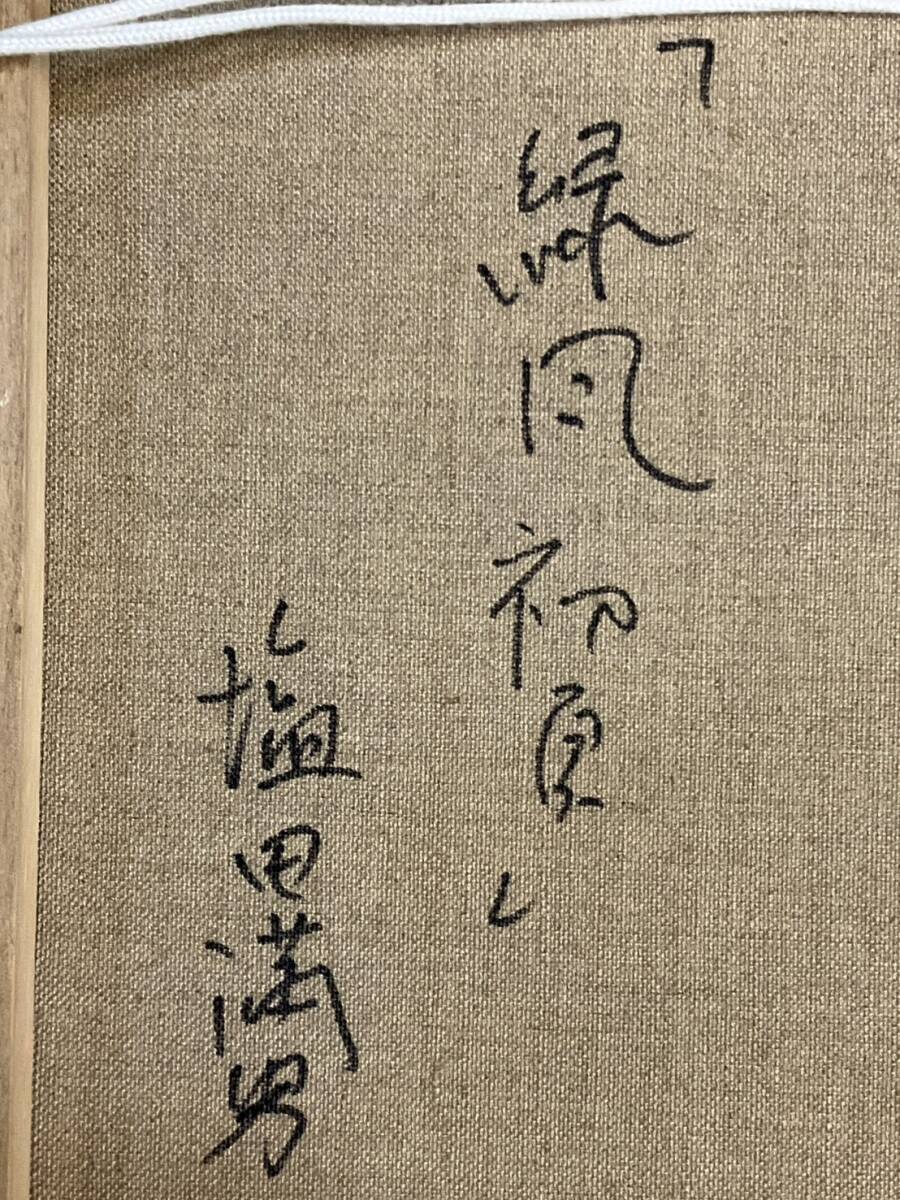 「緑風初夏」
塩田満男